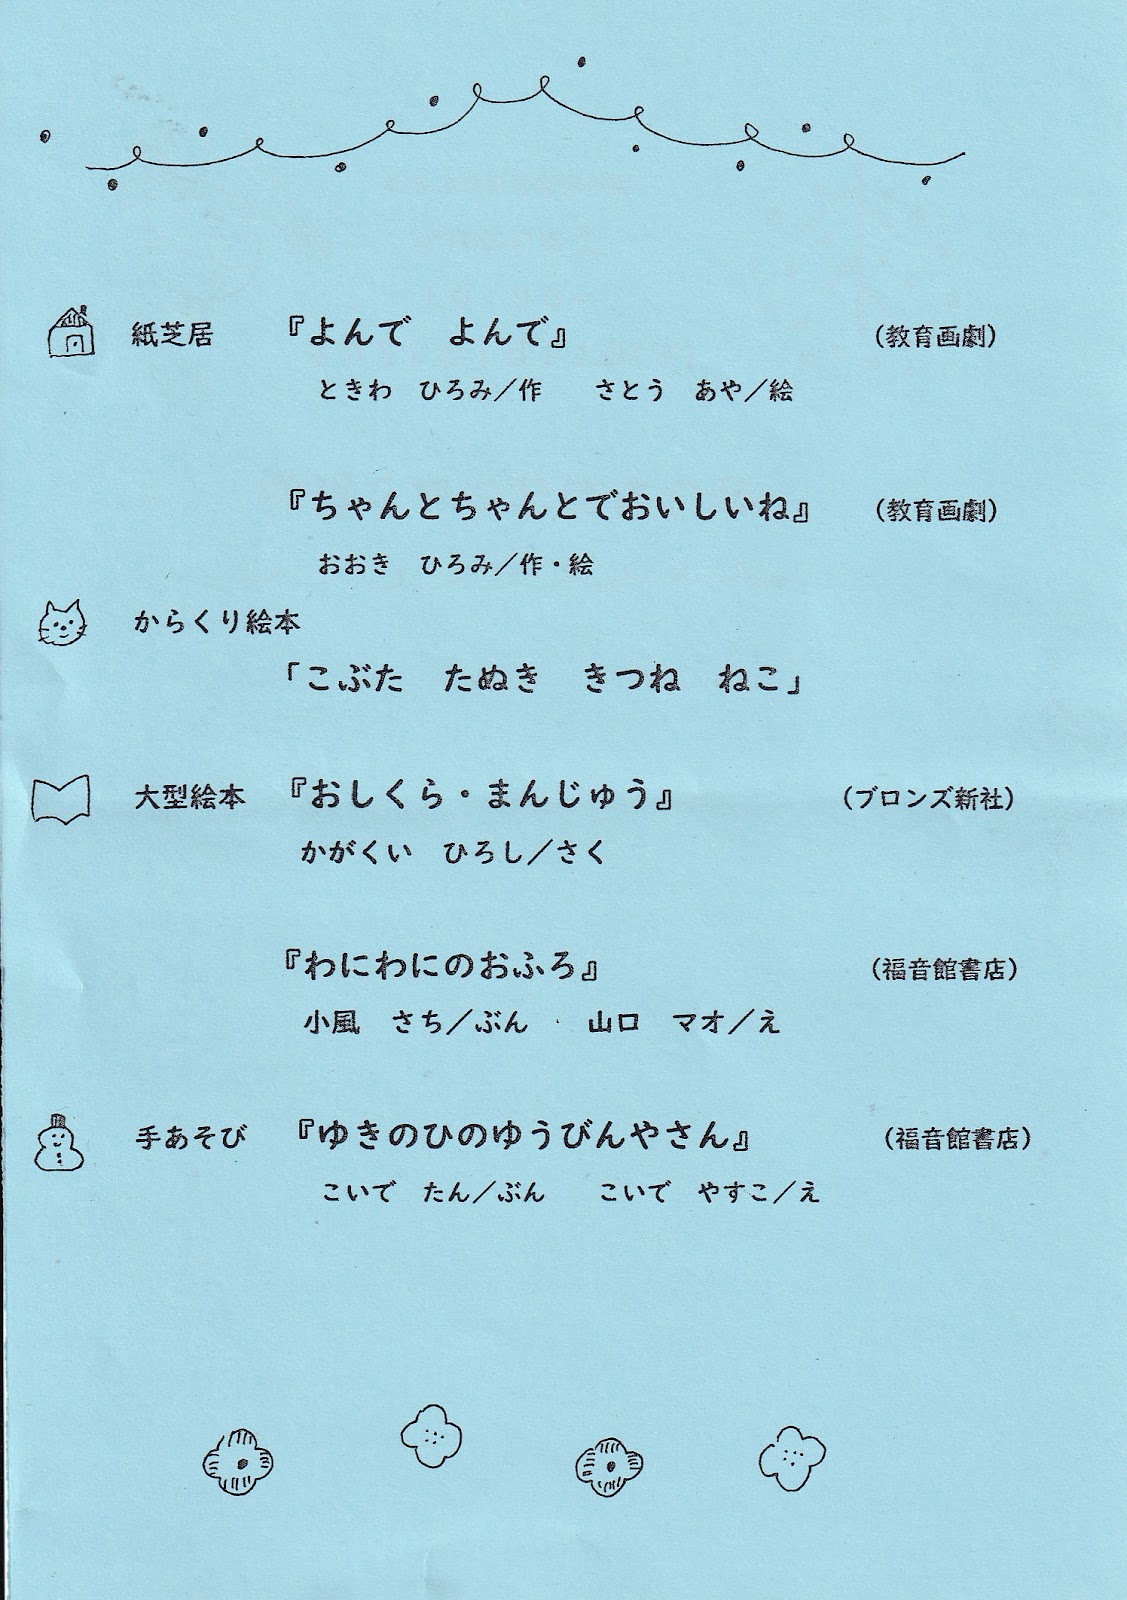 紙芝居　『よんで　よんで』　（教育画劇）
ときわ　ひろみ／作　さとう　あや／絵
『ちゃんとちゃんとでおいしいね』　（教育画劇）
おおき　ひろみ／作・絵
からくり絵本
「こぶた　たぬき　きつね　ねこ」
大型絵本　『おしくら・まんじゅう』　（ブロンズ新社）
かがくい　ひろし／さく
『わにわにのおふろ』　（福音館書店）
小風　さち／ぶん　山口　マオ／え
手あそび　『ゆきのひのゆうびんやさん』　（福音館書店）
こいで　たん／ぶん　こいで　やすこ／え